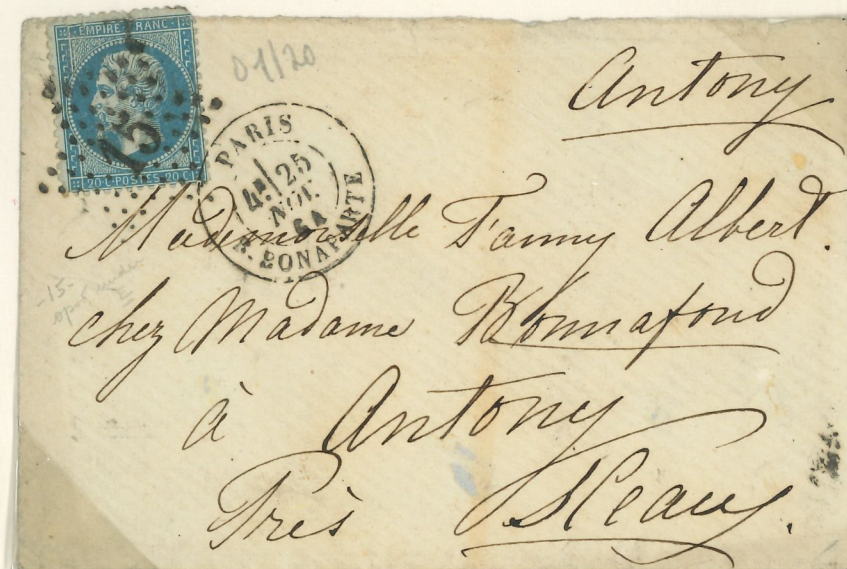 EMPIRE FRANC
20 C. POSTES 20 C.
15
01/20
PARIS
4E 25
NOV.
64
R. BONAPARTE
Antony
Mademoiselle Fanny Albert.
chez Madame Bonnafond
à Antony
Près Sceaux.
-15-